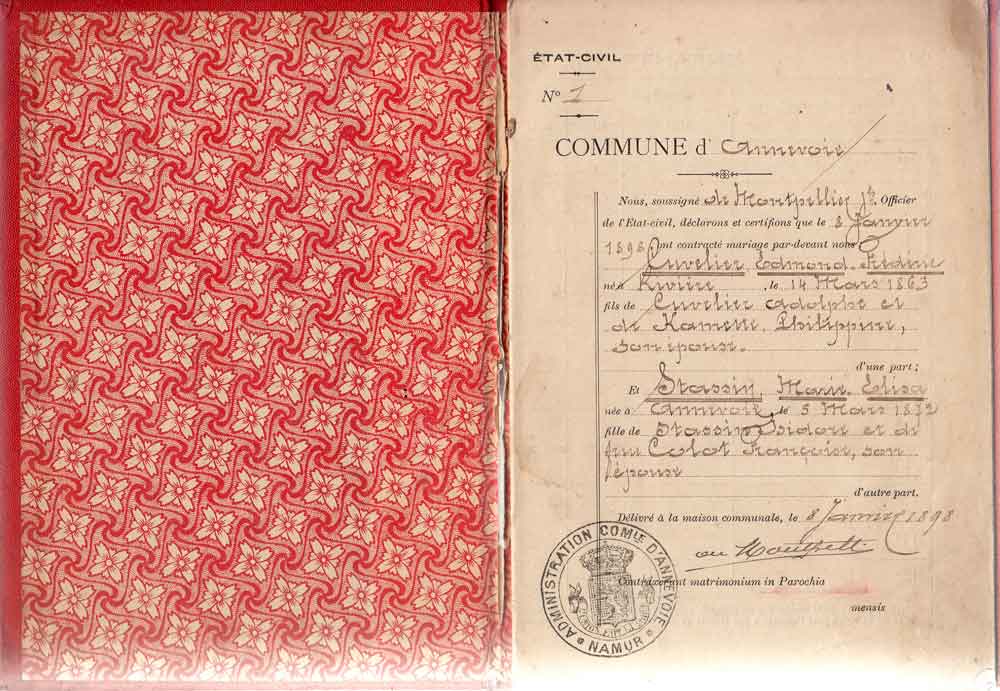 ÉTAT-CIVIL
N° 1
COMMUNE d' Annevoie
Nous, soussigné de Montpellier Officier
de l'Etat-civil, déclarons et certifions que le 8 Janvier
1898, ont contracté mariage par-devant nous
Cuvelier, Edmond
né à Rivière, le 14 Mars 1863
fils de Cuvelier Adolphe et
de Philippine,
son épouse.
d'une part;
Et Stassin, Marie, Elisa
née à Annevoie, le 5 Mars 1872
fille de Stassin Isidore et de
feu Colot Françoise, son
épouse
d'autre part.
Délivré à la maison communale, le 8 Janvier 1898
Contraxerunt matrimonium in Parochia
mensis
ADMINISTRATION COMLE D'ANNEVOIE
NAMUR